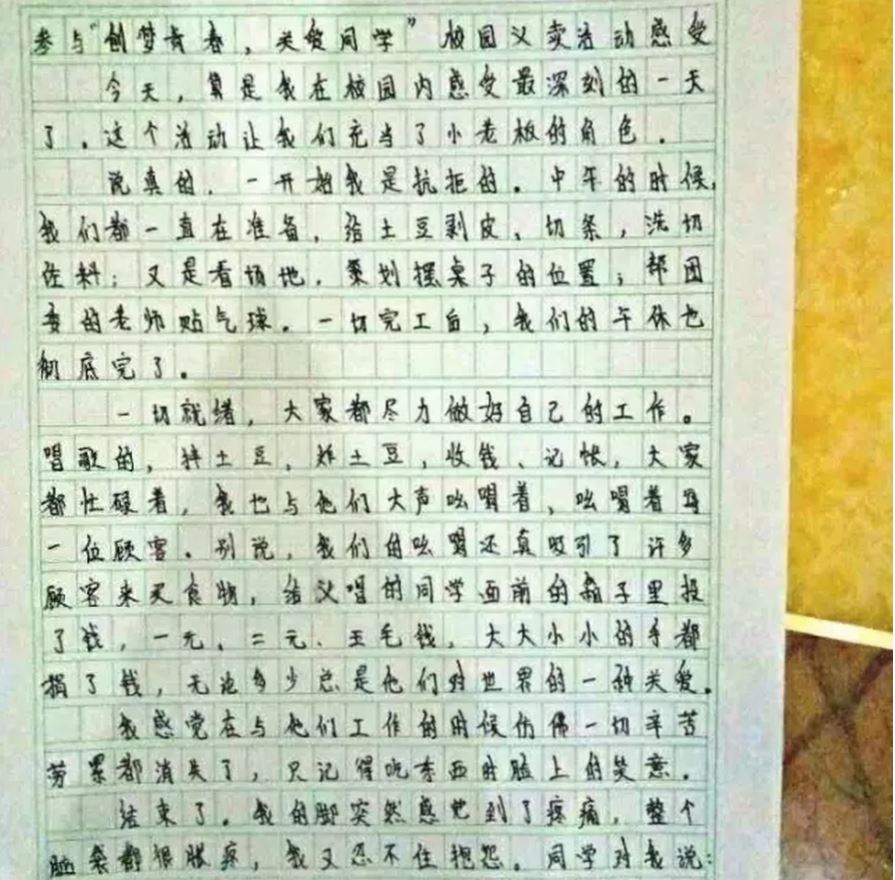 参与“创梦青春，关爱同学”校园义卖活动感受
今天，算是我在校园内感受最深刻的一天
了。这个活动让我们充当了小老板的角色。
说真的，一开始我是抗拒的。中午的时候，
我们都一直在准备，给土豆剥皮、切条，洗切
佐料；又是看场地，策划摆桌子的位置；帮团
委的老师贴气球。一切完工后，我们的午休也
彻底完了。
一切就绪，大家都尽力做好自己的工作。
唱歌的，拌土豆，炸土豆，收钱、记帐，大家
都忙碌着，我也与他们大声吆喝着，吆喝着每
一位顾客。别说，我们的吆喝还真吸引了许多
顾客来买食物，给义唱的同学面前的箱子里投
了钱，一元，二元、五毛钱，大大小小的手都
捐了钱，无论多少总是他们对世界的一种关爱。
我感觉在与他们工作的时候仿佛一切辛苦
劳累都消失了，只记得吃东西时脸上的笑意。
结束了。我的脚突然感觉到了疼痛，整个
脑袋都很胀疼，我又忍不住抱怨。同学对我说：